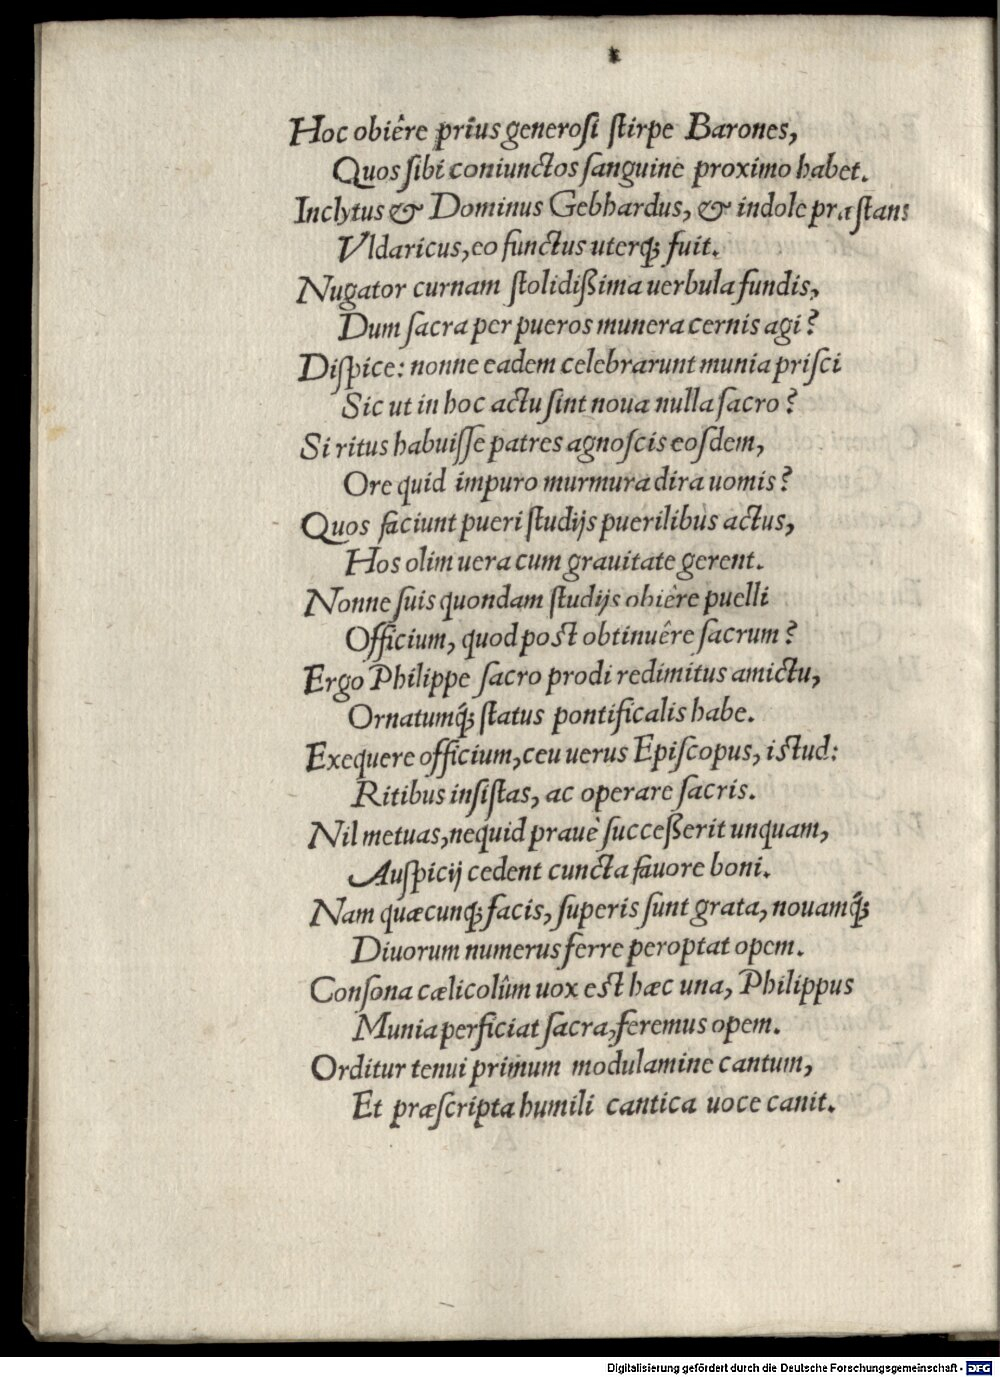 Hoc obiêre prius generosi stirpe Barones,
Quos sibi coniunctos sanguine proximo habet.
Inclytus & Dominus Gebhardus, & indole præstans
Vldaricus, eo functus uterq; fuit.
Nugator curnam stolidißima uerbula fundis,
Dum sacra per pueros munera cernis agi?
Dispice: nonne eadem celebrarunt munia prisci
Sic ut in hoc actu sint noua nulla sacro?
Si ritus habuisse patres agnoscis eosdem,
Ore quid impuro murmura dira uomis?
Quos faciunt pueri studijs puerilibus actus,
Hos olim uera cum grauitate gerent.
Nonne suis quondam studijs obiêre puelli
Officium, quod post obtinuêre sacrum?
Ergo Philippe sacro prodi redimitus amictu,
Ornatumq́; status pontificalis habe.
Exequere officium, ceu uerus Episcopus, istud:
Ritibus insistas, ac operare sacris.
Nil metuas, nequid prauè succeßerit unquam,
Auspicij cedent cuncta fauore boni.
Nam quæcunq; facis, superis sunt grata, nouamq́;
Diuorum numerus ferre peroptat opem.
Consona cælicolûm uox est hæc una, Philippus
Munia perficiat sacra, feremus opem.
Orditur tenui primum modulamine cantum,
Et præscripta humili cantica uoce canit.
Digitalisierung gefördert durch die Deutsche Forschungsgemeinschaft - DFG